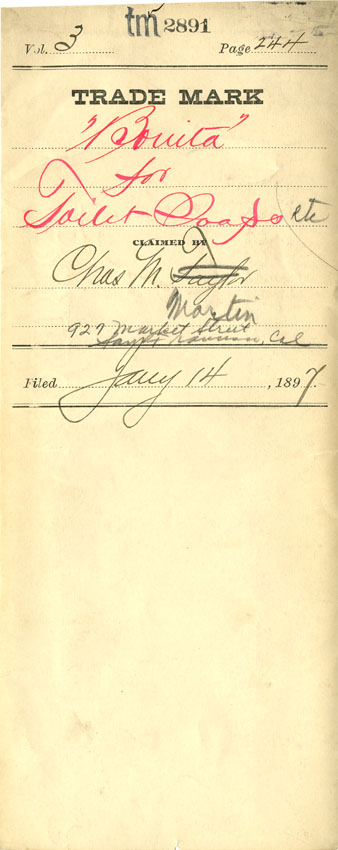 tm 2891
Vol. 3 Page 244
TRADE MARK
"Bonita"
for
Toilet Soaps etc
CLAIMED BY
Chas M. Taylor
Martin
927 Market Street
San Francisco, Cal
Filed Jany 14, 1897.